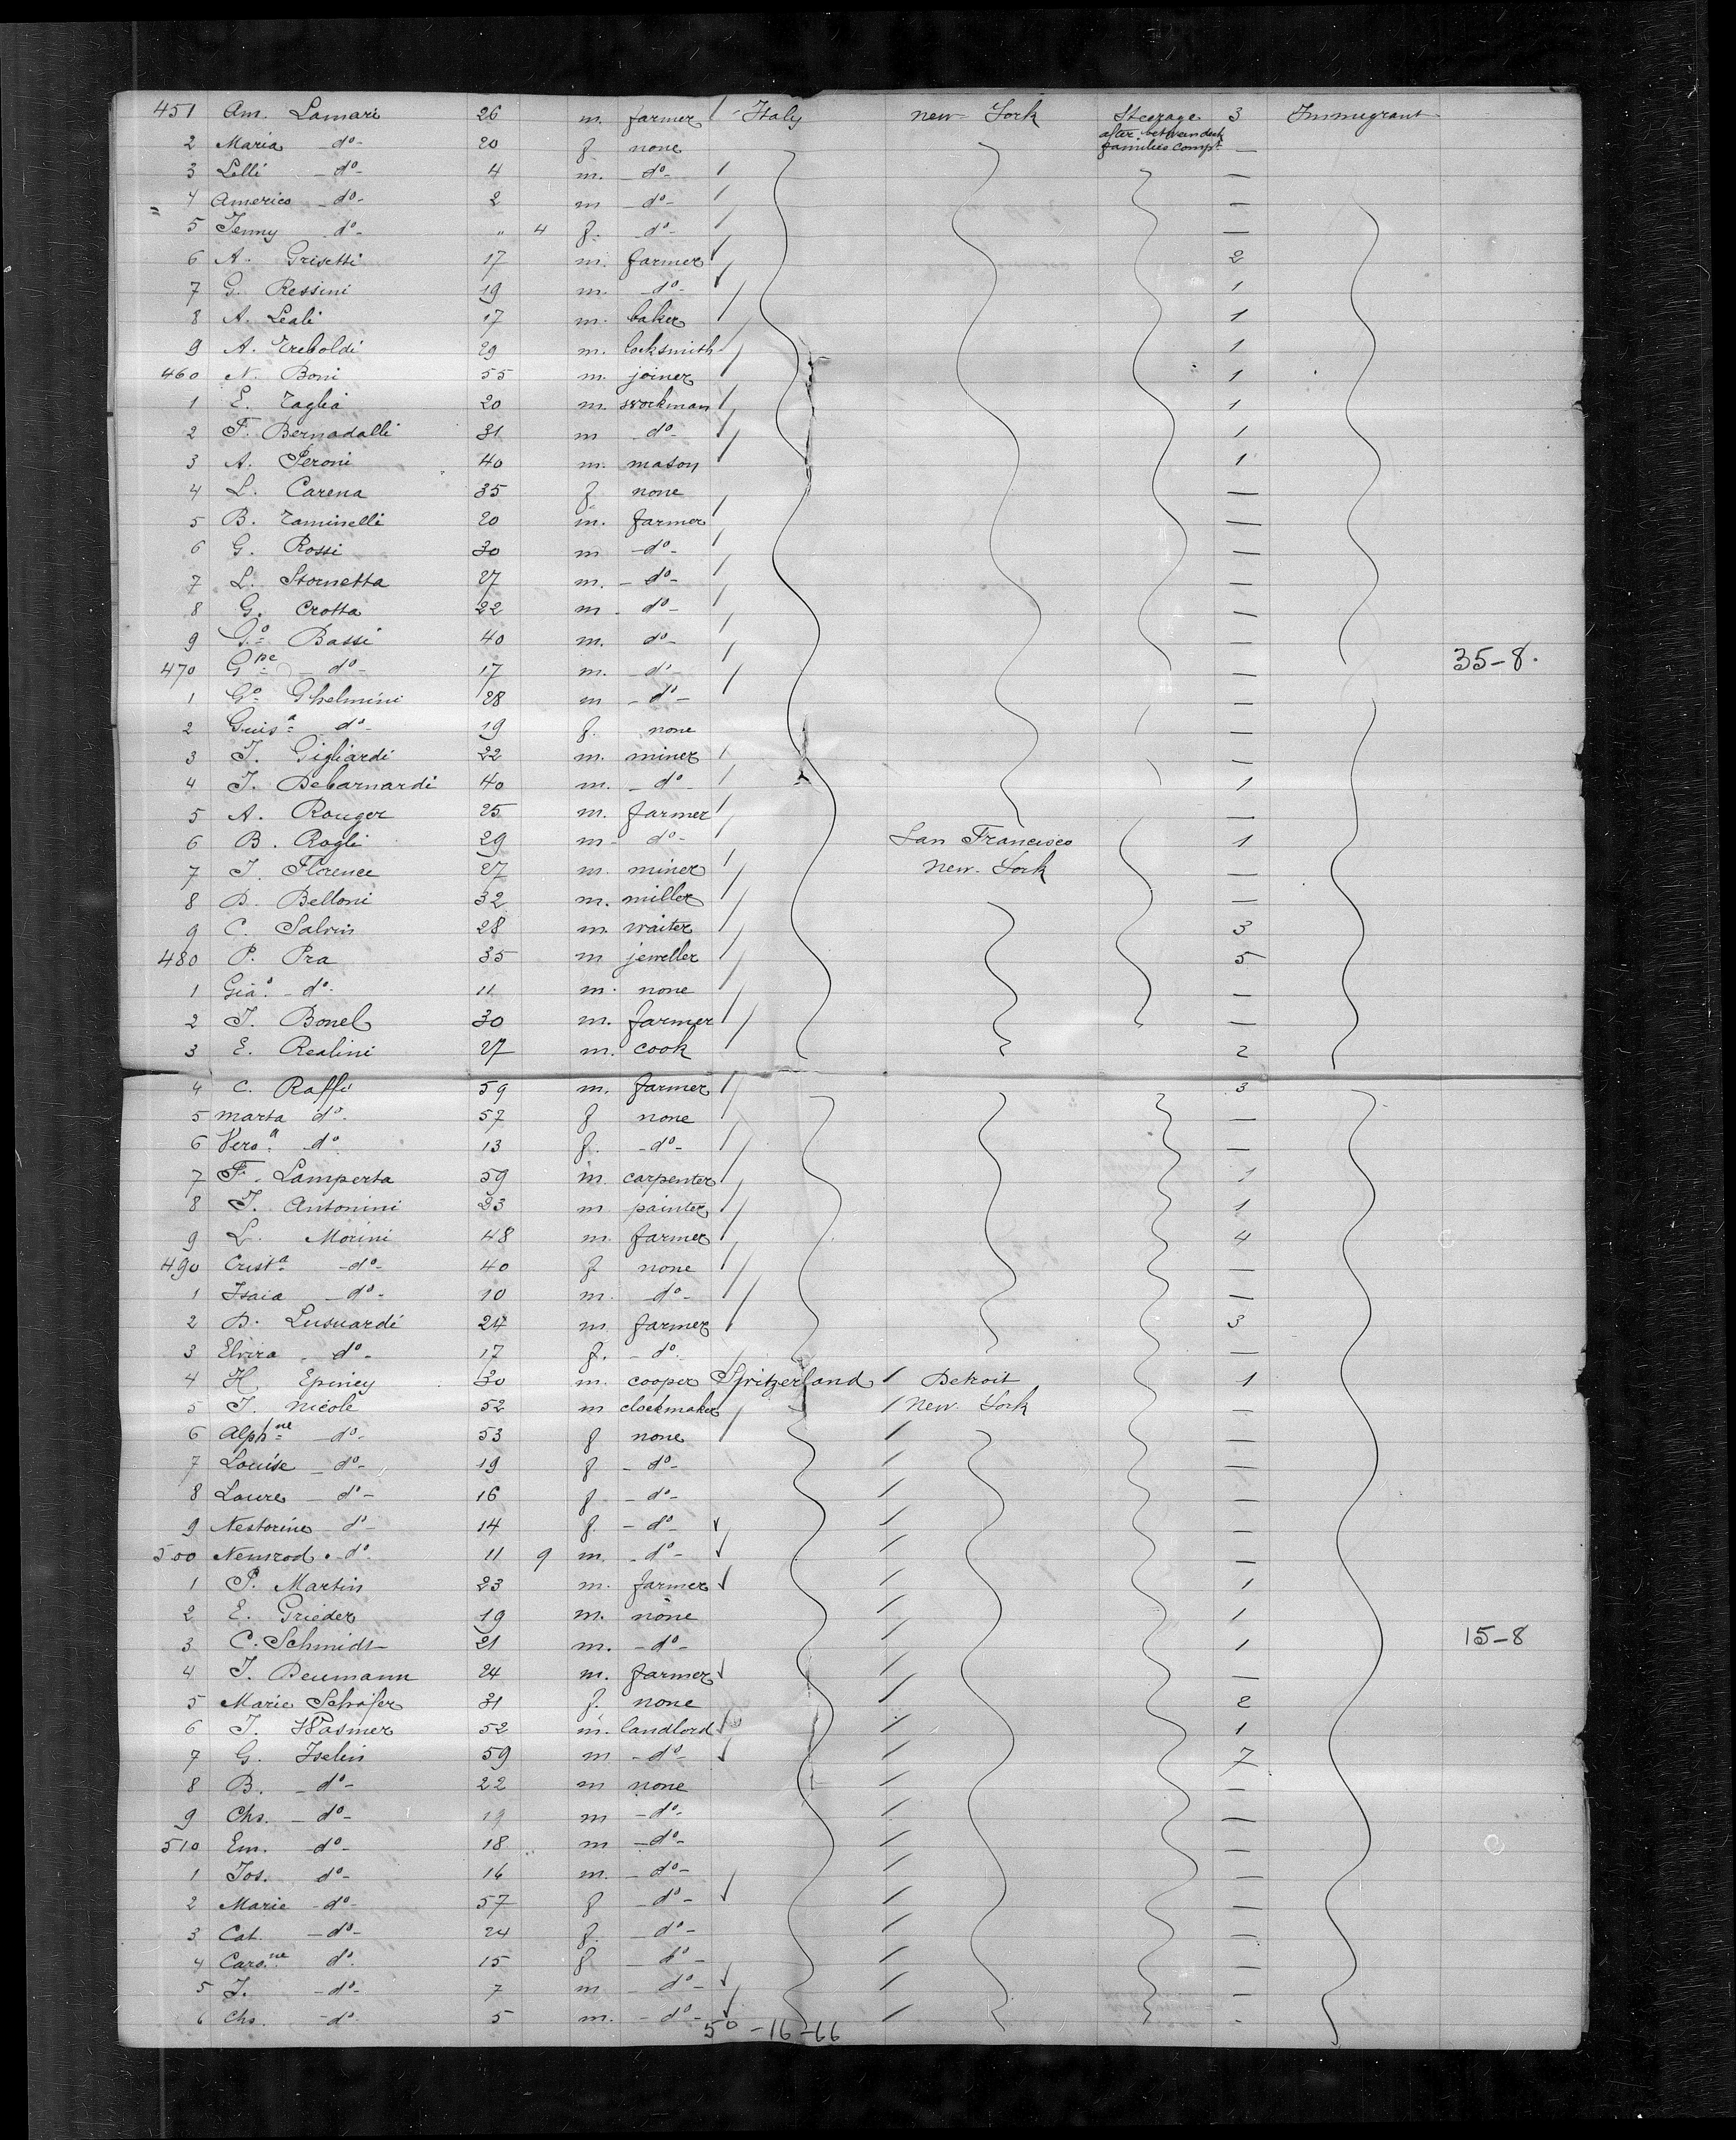 451 Am. Lamari 26 m. farmer Italy New York Steerage 3 Immigrant
after between deck
2 Maria do 20 f. none families compt —
3 Lilli do 4 m. do —
4 Americo do 2 m do —
5 Jenny do " 4 f. do —
6 A. Grisetti 17 m. farmer 2
7 G. Ressini 19 m. do 1
8 A. Leali 17 m. baker 1
9 A. Treboldi 29 m. locksmith 1
460 N. Boni 55 m. joiner 1
1 E. Taglia 20 m. workman 1
2 F. Bernadalli 31 m do 1
3 A. Peroni 40 m. mason 1
4 L. Carena 35 f. none —
5 B. Taminelli 20 m. farmer —
6 G. Rossi 30 m do —
7 L. Stornetta 27 m. do —
8 G. Crotta 22 m. do —
9 Go Bassi 40 m. do —
35-8.
470 Gpe do 17 m. do —
1 Go Ghelmini 28 m do —
2 Guisa do 19 f. none —
3 J. Gigliardi 22 m. miner —
4 J. Debarnardi 40 m. do 1
5 A. Rouger 25 m. farmer —
6 B. Rogli 29 m do San Francisco 1
7 J. Florence 27 m. miner New York —
8 D. Belloni 32 m. miller —
9 C. Salvin 28 m. waiter 3
480 P. Pra 35 m jeweller 5
1 Gia.o do 11 m. none —
2 J. Bonel 30 m. farmer —
3 E. Realini 27 m. cook 2
4 C. Raffi 59 m. farmer 3
5 Marta do 57 f none —
6 Vera do 13 f. do —
7 F. Lamperta 59 m. carpenter 1
8 J. Antonini 23 m painter 1
9 L. Morini 48 m. farmer 4
490 Crista do 40 f. none —
1 Isaia do 10 m. do —
2 D. Lusuardi 24 m. farmer 3
3 Elvira do 17 f. do —
4 H Epiney 30 m. cooper Switzerland Detroit 1
5 J. Nicole 52 m clockmaker New York —
6 Alphne do 53 f none —
7 Louise do 19 f do —
8 Laure do 16 f do —
9 Nestorine do 14 f. do —
500 Nemrod do 11 9 m. do —
1 P. Martin 23 m. farmer 1
2 E. Grieder 19 m. none 1
3 C. Schmidt 21 m. do 1 15-8
4 J. Beumann 24 m. farmer —
5 Marie Schäfer 31 f. none 2
6 J. Wasmer 52 m. landlord 1
7 G. Iselin 59 m do 7
8 B. do 22 m none —
9 Chs. do 19 m do —
510 Em. do 18 m do —
1 Jos. do 16 m. do —
2 Marie do 57 f do —
3 Cat. do 24 f. do —
4 Carone do 15 f do —
5 J. do 7 m do —
6 Chs. do 5 m. do -
50-16-66